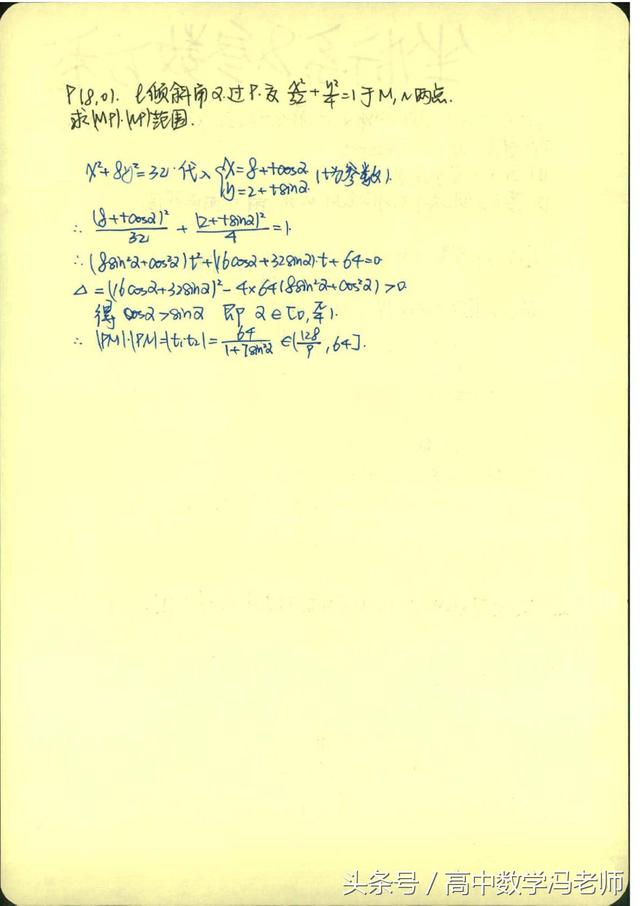 P(8,0). l倾斜角α.过P.交 x²/32 + y²/4 =1 于M,N两点.
求|MP|·|NP|范围.
x²+8y²=32. 代入 { x=8+tcosα y=2+tsinα (t为参数).
∴ (8+tcosα)²/32 + (2+tsinα)²/4 =1.
∴ (8sin²α+cos²α)t²+(16cosα+32sinα)·t+64=0
Δ=(16cosα+32sinα)²-4×64(8sin²α+cos²α)>0
得 cosα>sinα 即 α∈[0,π/4).
∴ |PM|·|PM|=|t₁t₂|= 64/(1+7sin²α) ∈(128/9,64].
头条号 / 高中数学冯老师